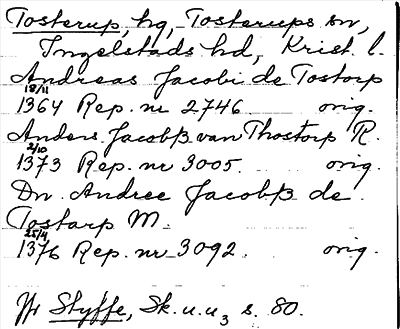 Tosterup, hg, Tosterups sn,
Ingelstads hd, Krist. l.
Andreas Jacobi de Tostorp
18/11
1364 Rep. nr 2746. orig.
Anders Jacobß van Thostorp R.
2/10
1373 Rep. nr 3005. orig.
Dn Andree Jacobß de
Tostarp M.
25/4
1376 Rep. nr 3092. orig.
Jfr Styffe, Sk. u. u3 s. 80.